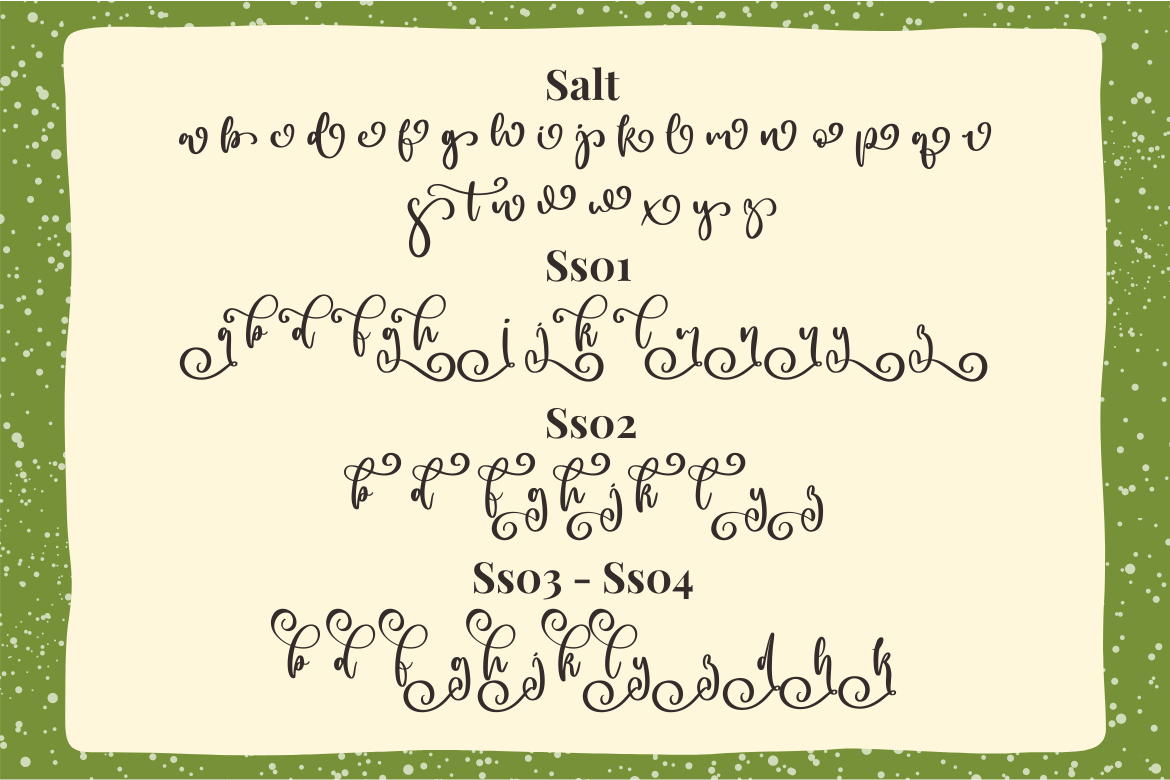 Salt
a b c d e f g h i j k l m n o p q r
s t u v w x y z
Ss01
a b d f g h i j k l m n u y z
Ss02
b d f g h j k l y z
Ss03 - Ss04
b d f g h j k l y z d h k